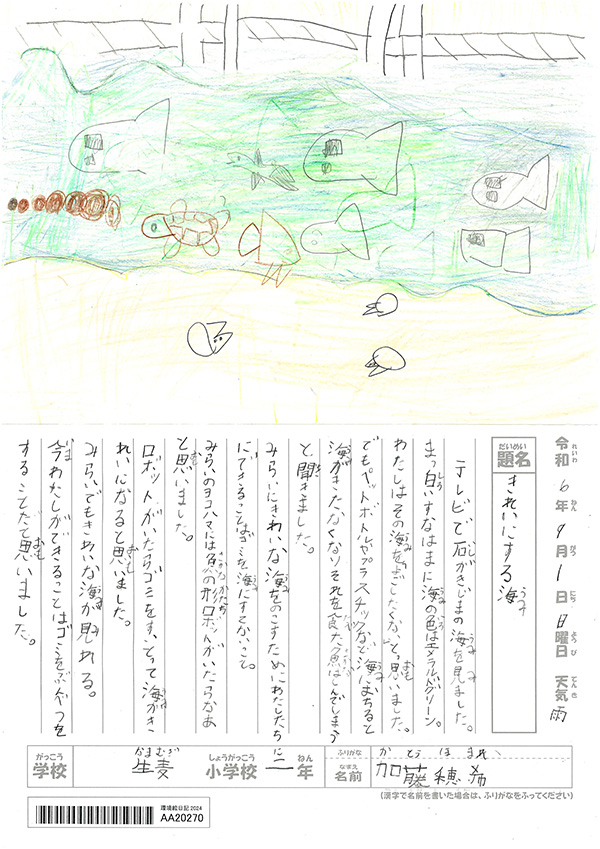 令和6年9月1日日曜日 天気雨
れいわ ねん がつ にち ようび てんき
だいめい
題名
きれいにする海
うみ
テレビで石がきじまの海を見ました。
まっ白いすなはまに海の色はエメラルドグリーン。
わたしはその海をよごしたくないと思いました。
でもペットボトルやプラスチックなど海におちると
海がきたなくなりそれを食べた魚はしんでしまう
と聞きました。
みらいにきれいな海をのこすためにわたしたちに
にできることはゴミを海にすてないこと。
みらいのヨコハマには魚の形ロボットがいたらなあ
と思いました。
ロボットがいたらゴミをすいとって海がき
れいになると思いました。
みらいでもきれいな海が見れる。
今わたしができることはゴミをひろうことを
することだと思いました。
がっこう
学校
なまむぎ
生麦
しょうがっこう
小学校
二年
ねん
ふりがな
かとうほまれ
なまえ
名前
加藤穂希
(漢字で名前を書いた場合は、ふりがなをふってください)
環境絵日記2024
AA20270